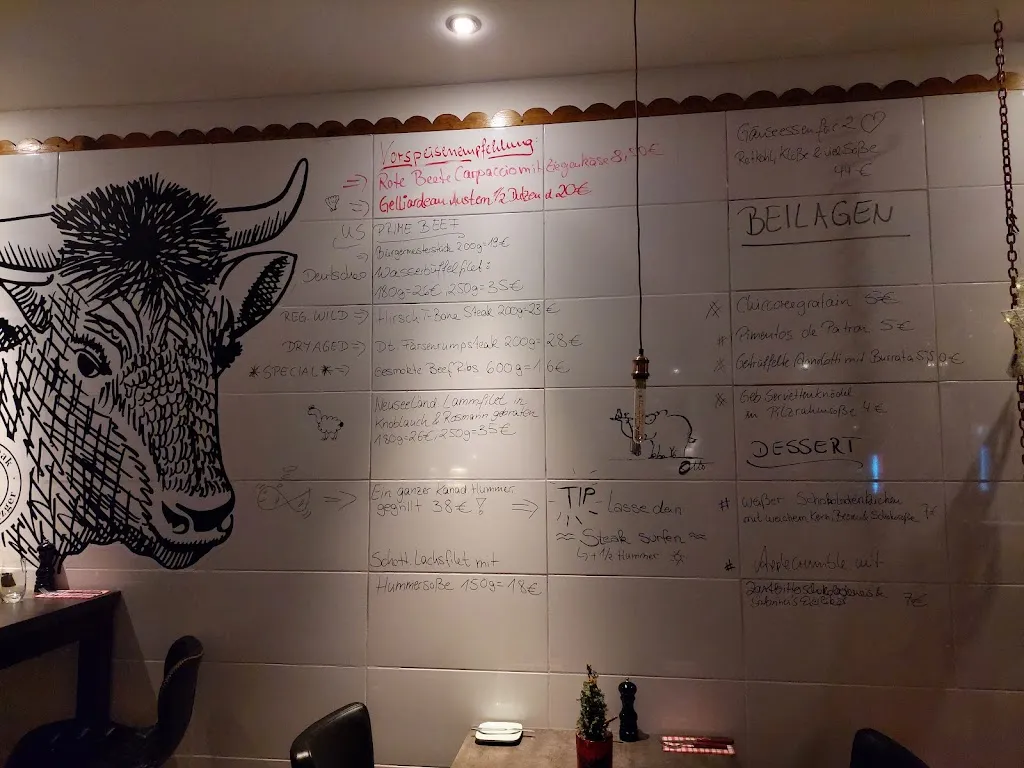 Vorspeisenempfehlung:
=> Rote Beete Carpaccio mit Ziegenkäse 8,50€
=> Gelliardeau Austern 1/2 Dutzend 20€
US PRIME BEEF
=> Bürgermeisterstück 200g=19€
Deutsches Wasserbüffelfilet:
180g=26€ 250g=35€
REG. WILD => Hirsch T-Bone Steak 200g=23€
DRY AGED => Dt. Färsenrumpsteak 200g=28€
*SPECIAL* => Gesmokte Beef Ribs 600g=16€
Neuseeland Lammfilet in
Knoblauch & Rosmarin gebraten
180g=26€/250g=35€
=> Ein ganzer Kanad Hummer
gegrillt 38€!
=> TIP Lasse dein
Steak surfen
+1/2 Hummer
Schott. Lachsfilet mit
Hummersoße 150g=18€
Otto
Gänseessen für 2
Rotkohl, Klöße & Soße
44€
BEILAGEN
5€
Pimentos de Patron 5€
Getrüffelte mit Burrata 5,50€
Geb. Serviettenknödel
in Pilzrahmsoße 4€
DESSERT
# weißer Schokoladenkuchen
mit weichem Kern, 7€
# Applecrumble mit
7€